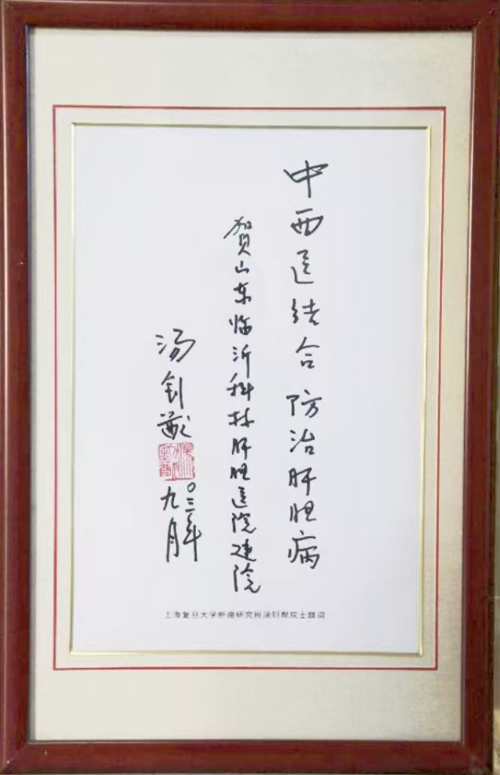 中西医结合 防治肝胆病
贺山东临沂科林肝胆医院建院
汤钊猷
九月
上海复旦大学肝癌研究所汤钊猷院士题词